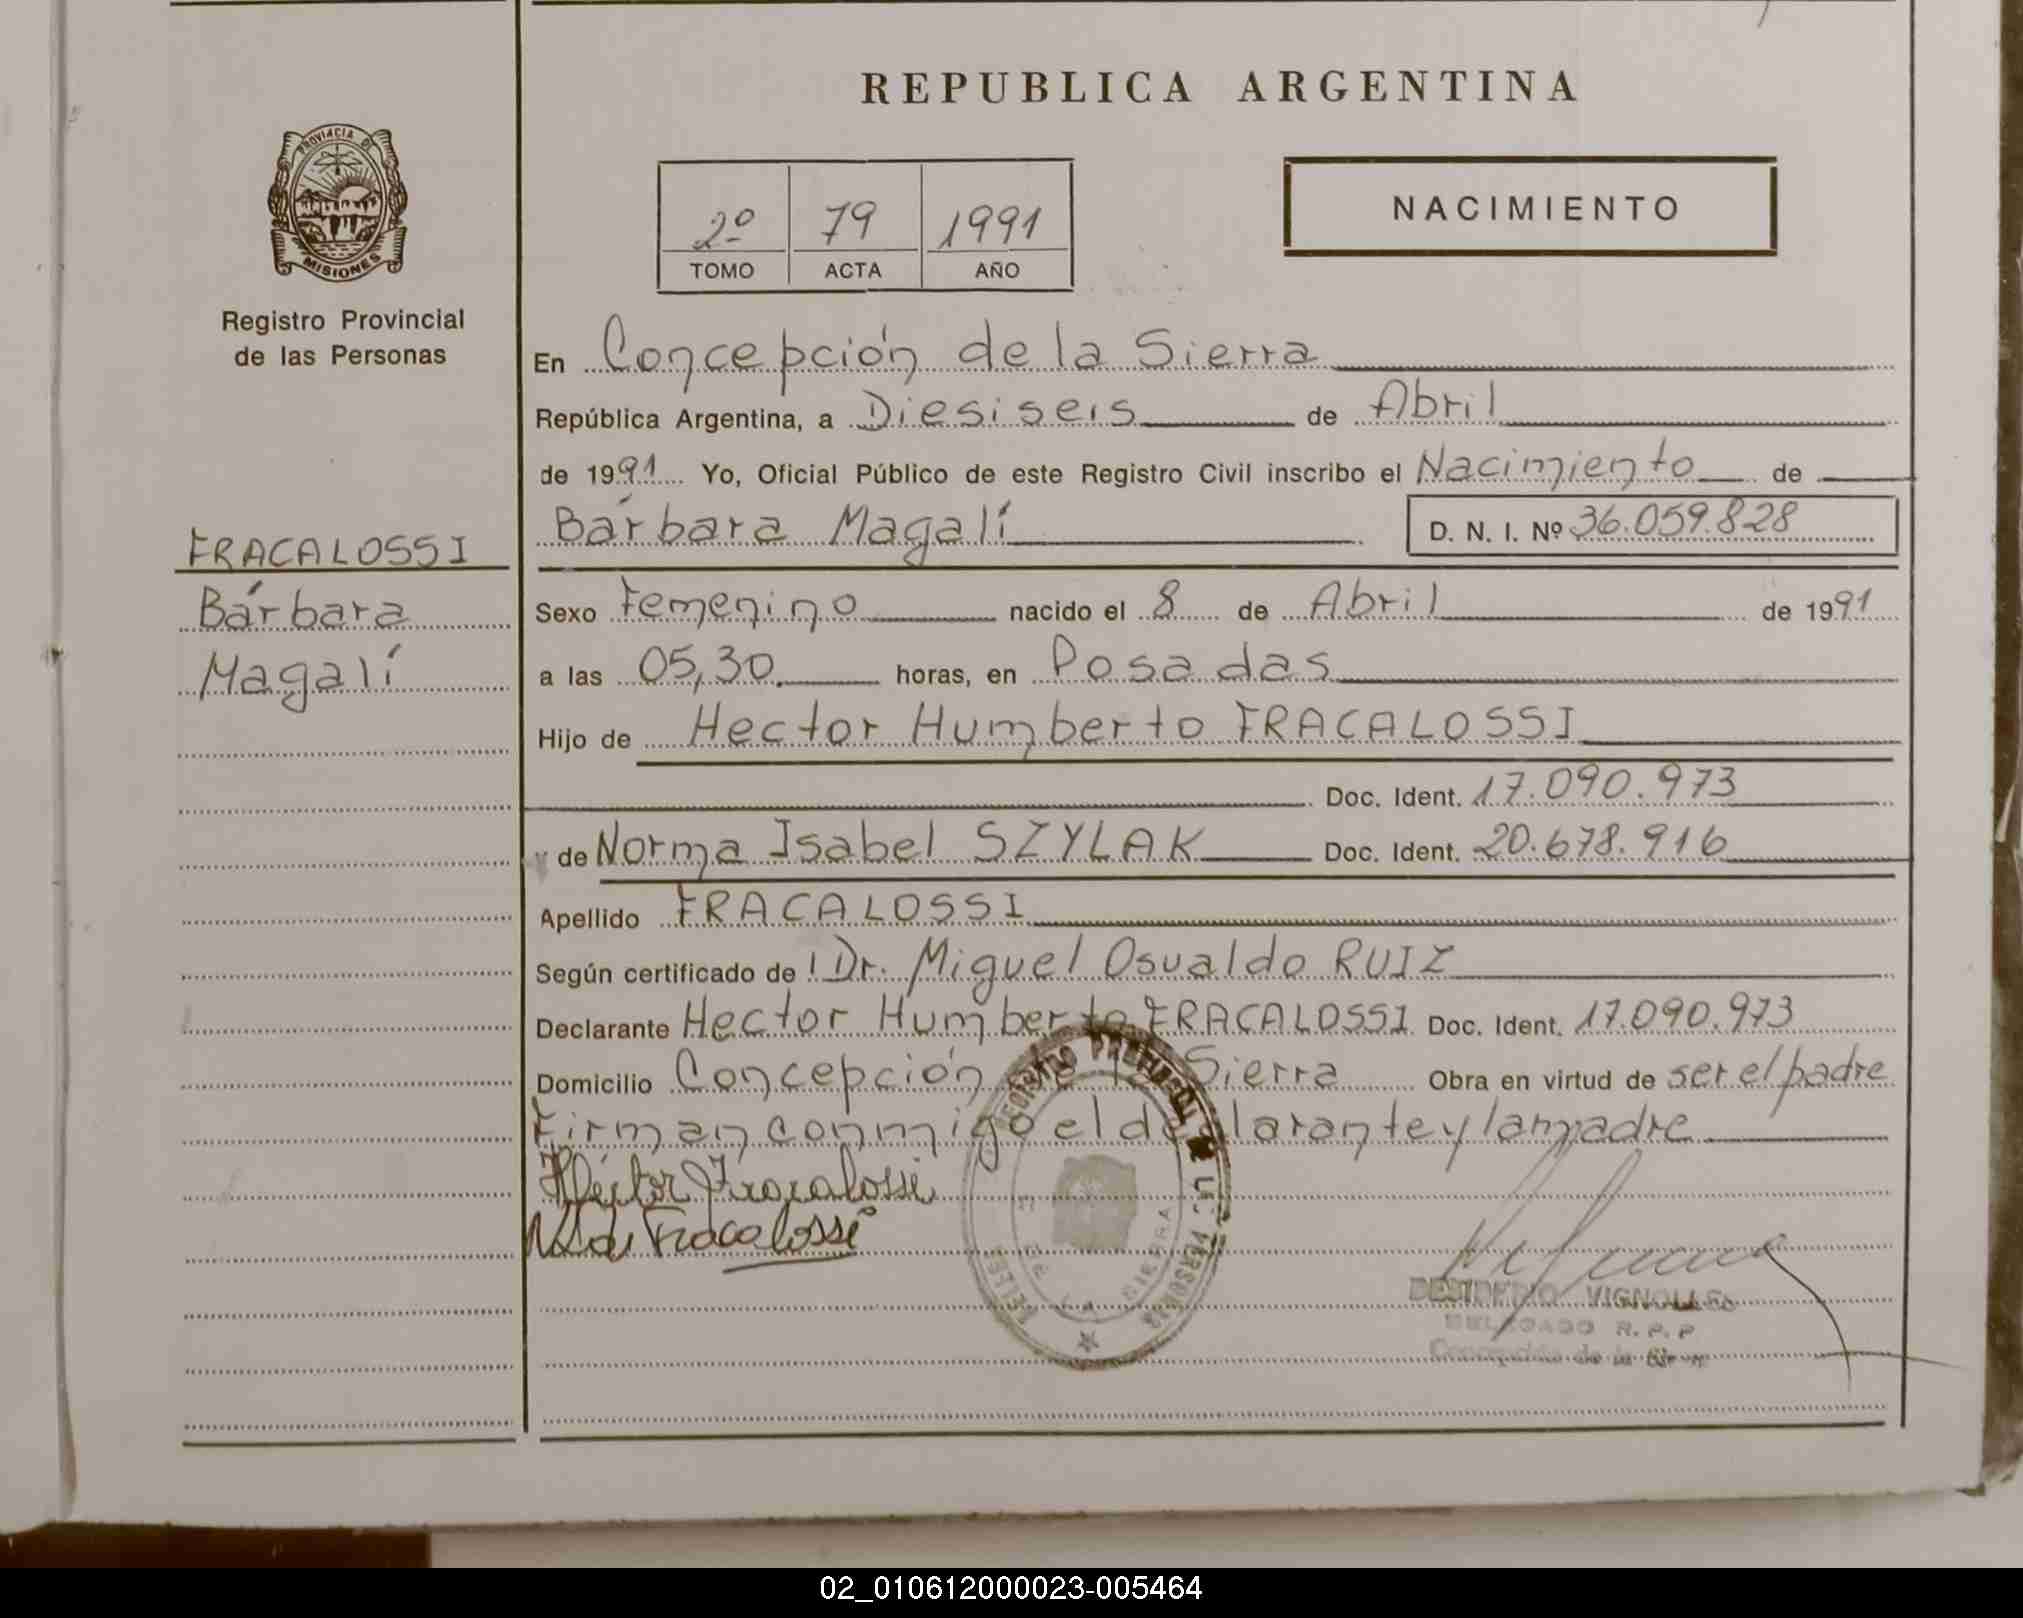 REPUBLICA ARGENTINA
PROVINCIA DE
MISIONES
Registro Provincial
de las Personas
2º 79 1991
TOMO ACTA AÑO
NACIMIENTO
En Concepción de la Sierra
República Argentina, a Diesiseis de Abril
de 1991 Yo, Oficial Público de este Registro Civil inscribo el Nacimiento de
Bárbara Magalí D. N. I. Nº 36.059.828
FRACALOSSI
Bárbara
Magalí
Sexo Femenino nacido el 8 de Abril de 1991
a las 05,30 horas, en Posadas
Hijo de Hector Humberto FRACALOSSI
Doc. Ident. 17.090.973
y de Norma Isabel SZYLAK Doc. Ident. 20.678.916
Apellido FRACALOSSI
Según certificado de Dr. Miguel Osvaldo RUIZ
Declarante Hector Humberto FRACALOSSI Doc. Ident. 17.090.973
Domicilio Concepción de la Sierra Obra en virtud de ser el padre
Firman conmigo el declarante y la madre
Héctor Fracalossi
de Fracalossi
DESIDERIO VIGNOLLES
DELEGADO R.P.P
Concepción de la Sierra
02_010612000023-005464